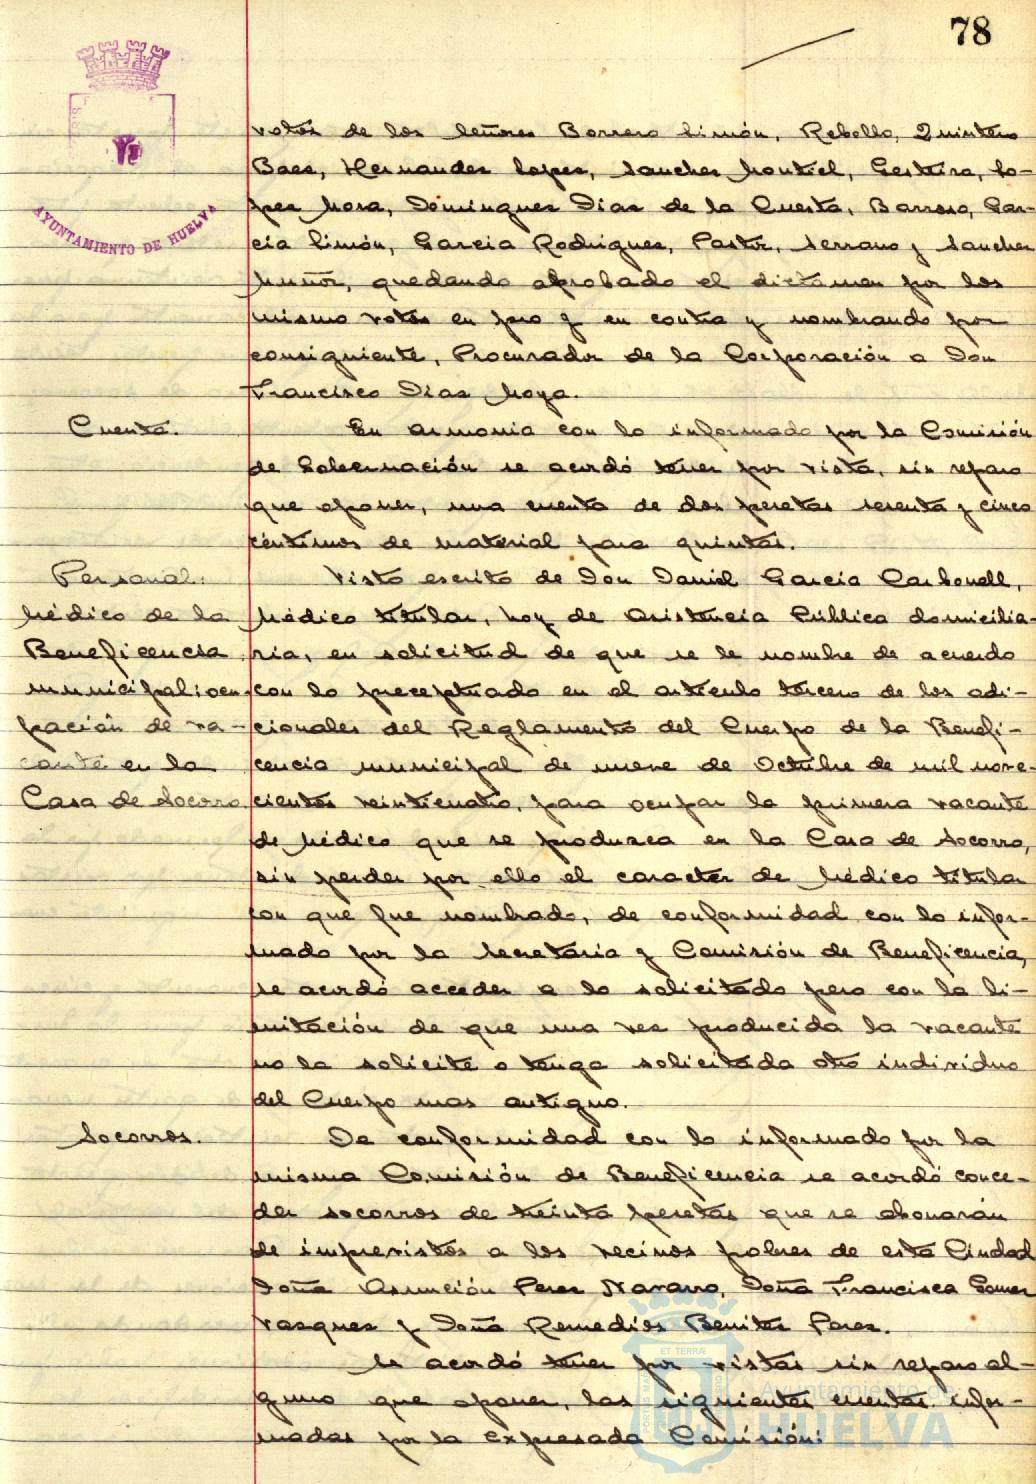 78
AYUNTAMIENTO DE HUELVA
votos de los Señores Borrero Limón, Rebollo, Quintero
Baez, Hernandez Lopez, Sanchez Montiel, Gestera, Lo-
pez Mora, Dominguez Diaz de la Cuesta, Barroso, Gar-
cia Limón, Garcia Rodriguez, Pastor, Serrano y Sanchez
Muñoz, quedando aprobado el dictamen por los
mismo votos en pro y en contra y nombrando por
consiguiente, Procurador de la Corporación a Don
Francisco Diaz Moya.
Cuenta.
En armonia con lo informado por la Comisión
de Gobernación se acordó tener por vista, sin reparo
que oponer, una cuenta de dos pesetas sesenta y cinco
céntimos de material para quintas.
Personal:
Médico de la
Beneficencia
municipal; ocu-
pación de va-
cante en la
Casa de Socorro.
Visto escrito de Don Daniel Garcia Carbonell,
Médico titular, hoy de Asistencia Pública domicilia-
ria, en solicitud de que se le nombre de acuerdo
con lo preceptuado en el articulo tercero de los adi-
cionales del Reglamento del Cuerpo de la Benefi-
cencia municipal de nueve de Octubre de mil nove-
cientos veinticuatro, para ocupar la primera vacante
de Médico que se produzca en la Casa de Socorro,
sin perder por ello el caracter de Médico titular
con que fue nombrado, de conformidad con lo infor-
mado por la Secretaria y Comisión de Beneficencia,
se acordó acceder a lo solicitado pero con la li-
mitación de que una vez producida la vacante
no la solicite o tenga solicitada otro individuo
del Cuerpo mas antiguo.
Socorros.
De conformidad con lo informado por la
misma Comisión de Beneficencia se acordó conce-
der socorros de treinta pesetas que se abonarán
de imprevistos a los vecinos pobres de esta Ciudad
Doña Asunción Perez Navarro, Doña Francisca Gomez
Vazquez y Doña Remedios Benitez Perez.
Se acordó tener por vistas sin reparo al-
guno que oponer, las siguientes cuentas infor-
madas por la expresada Comisión:
ET TERRÆ
Ayuntamiento de
HUELVA